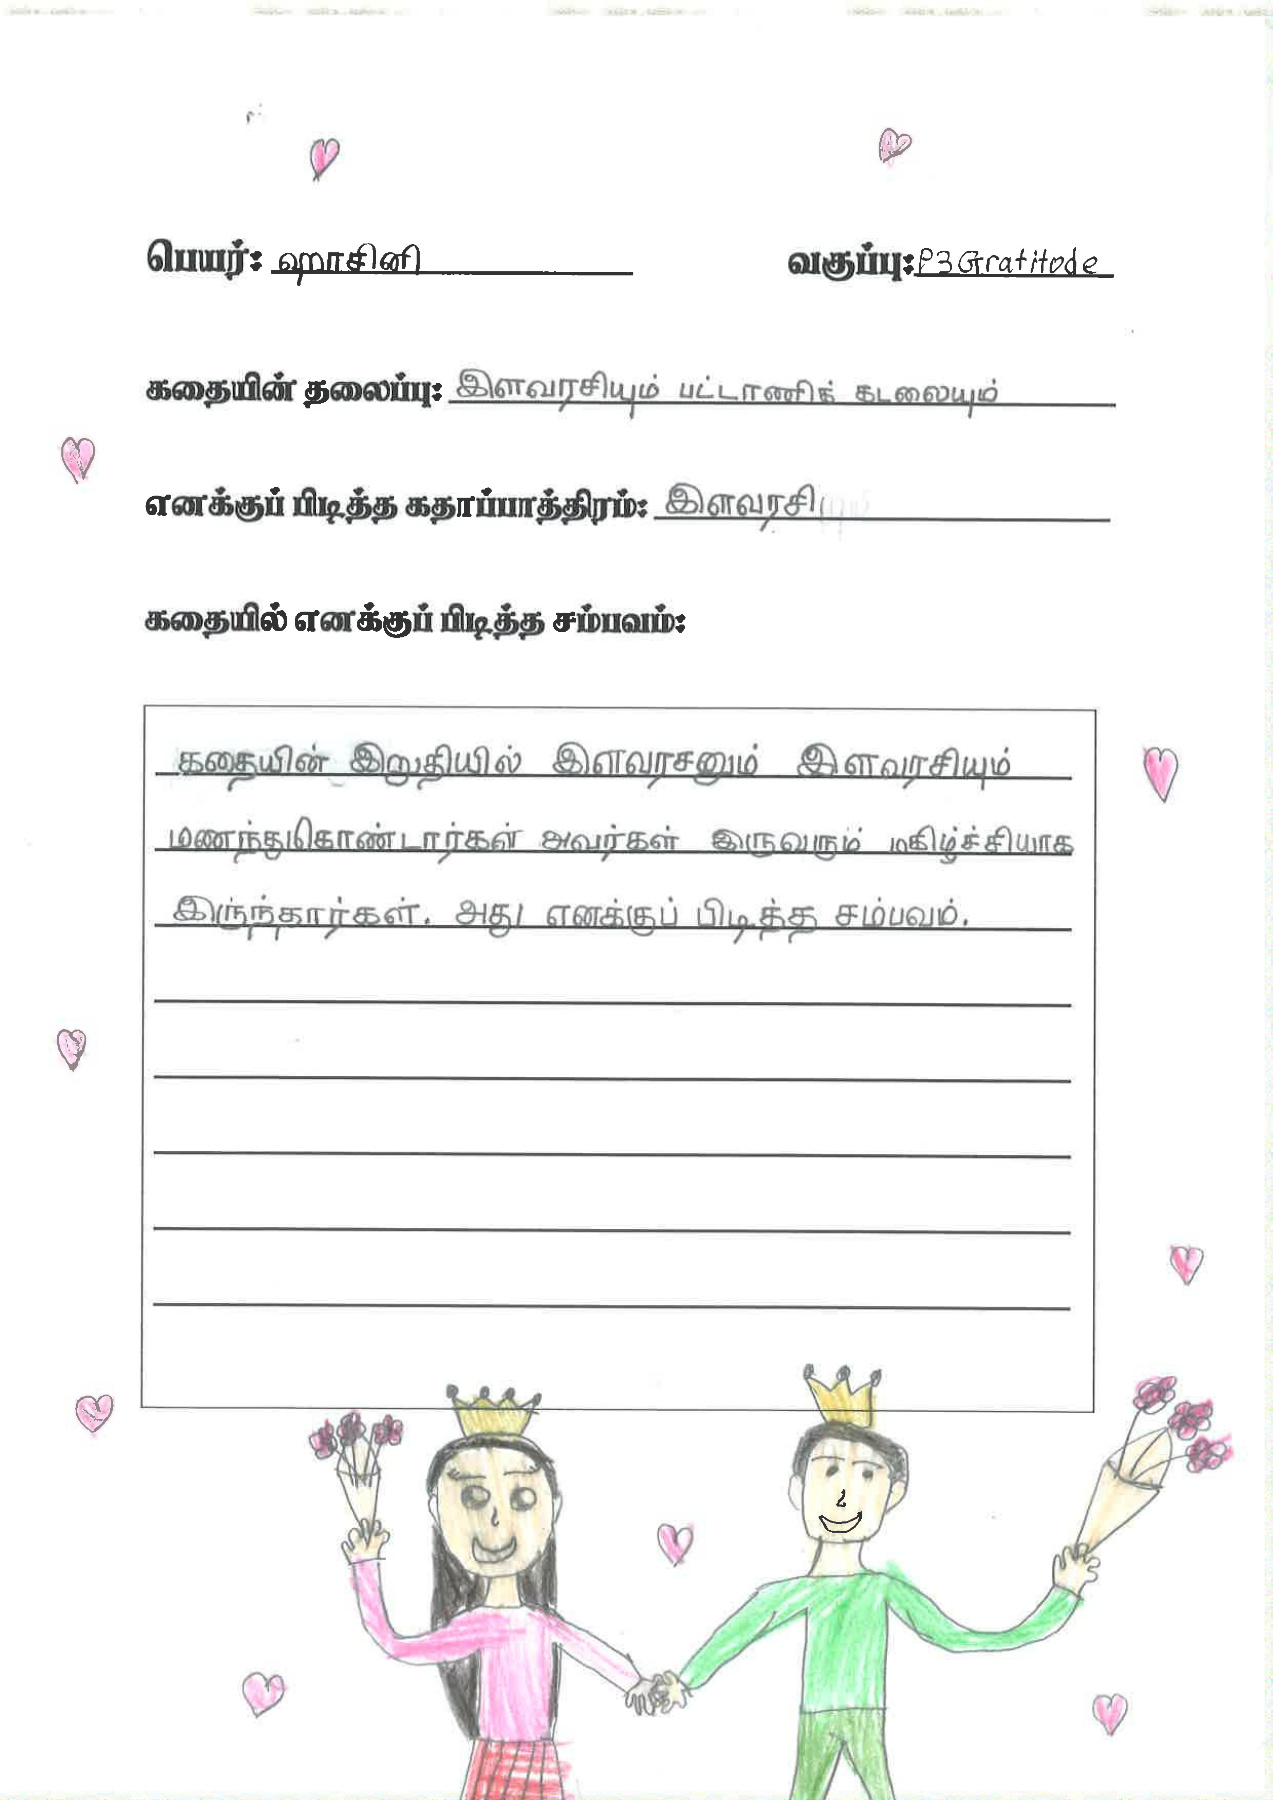 பெயர்: ஹாசினி வகுப்பு: P3 Gratitode
கதையின் தலைப்பு: இளவரசியும் பட்டாணிக் கடலையும்
எனக்குப் பிடித்த கதாப்பாத்திரம்: இளவரசி
கதையில் எனக்குப் பிடித்த சம்பவம்:
கதையின் இறுதியில் இளவரசனும் இளவரசியும்
மணந்துகொண்டார்கள் அவர்கள் இருவரும் மகிழ்ச்சியாக
இருந்தார்கள். அது எனக்குப் பிடித்த சம்பவம்.